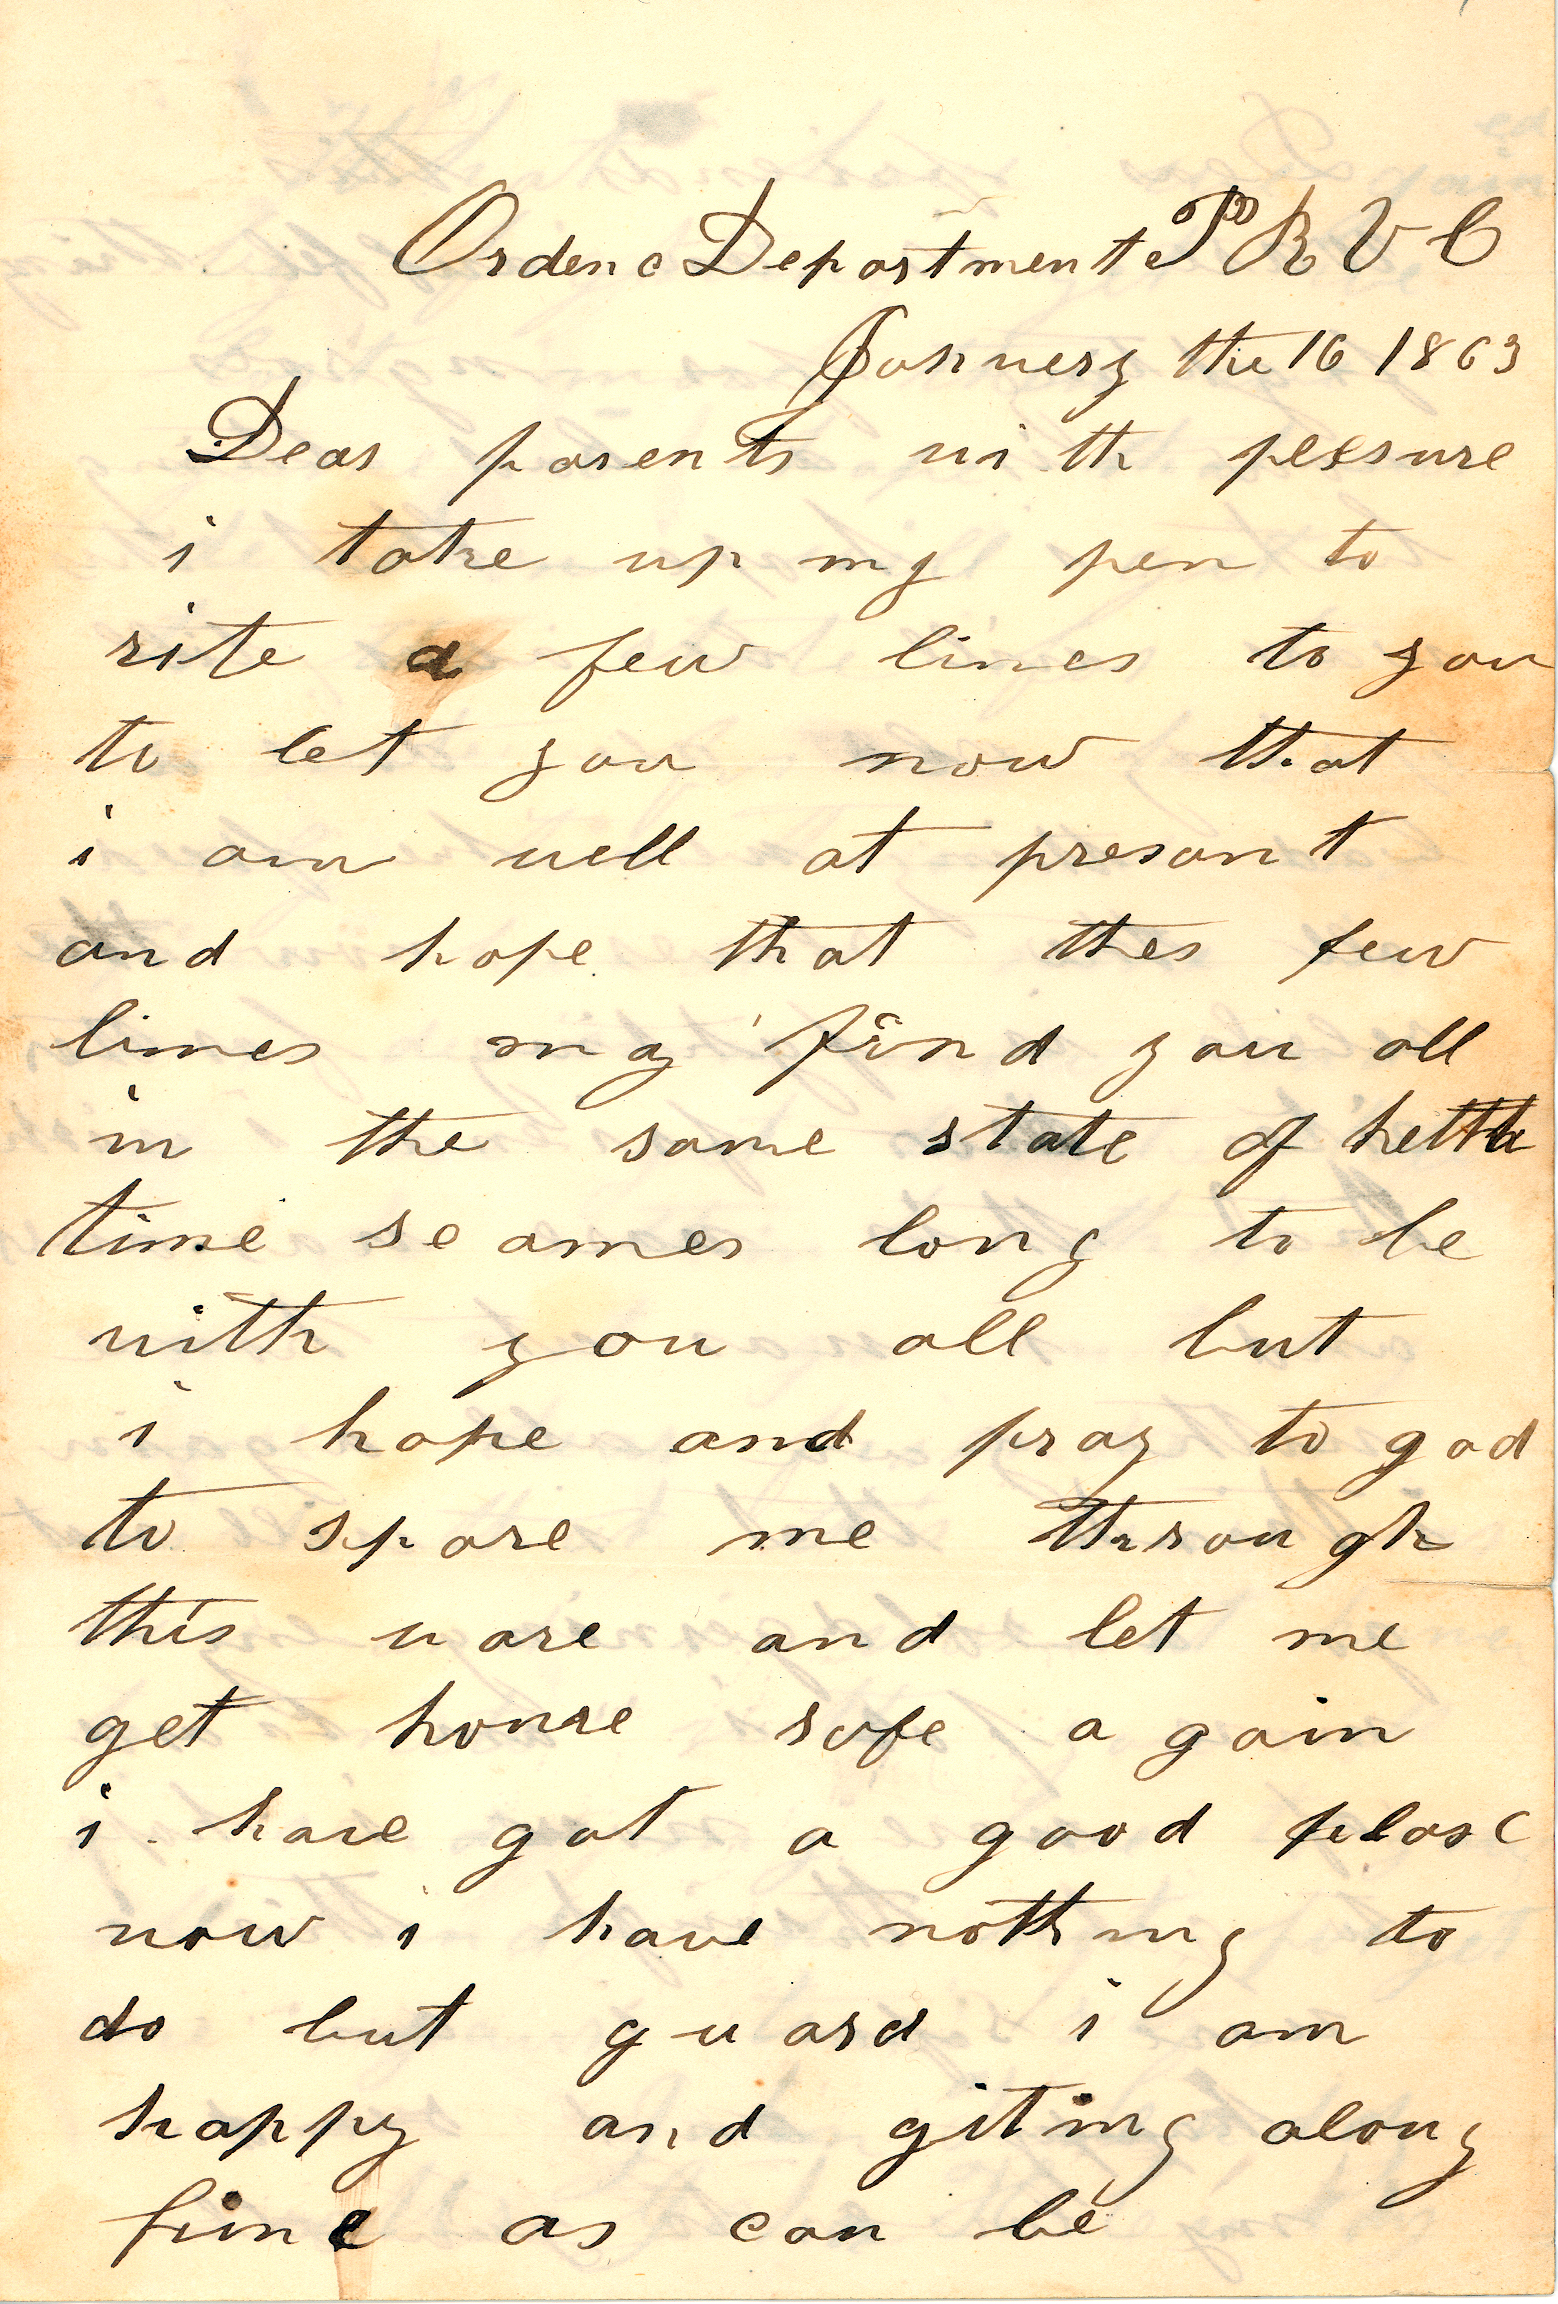 Ordenc Departmente P R V C
Januery the 16 1863
Dear parents with pleesure
i take up my pen to
rite a few lines to you
to let you now that
i am well at presant
and hope that thes few
lines my find you all
in the same state of hetth
time seames long to be
with you all but
i hope and pray to god
to spare me through
this ware and let me
get home safe a gain
i have got a good plase
now i have nothing to
do but guard i am
happy and giting along
fine as can be